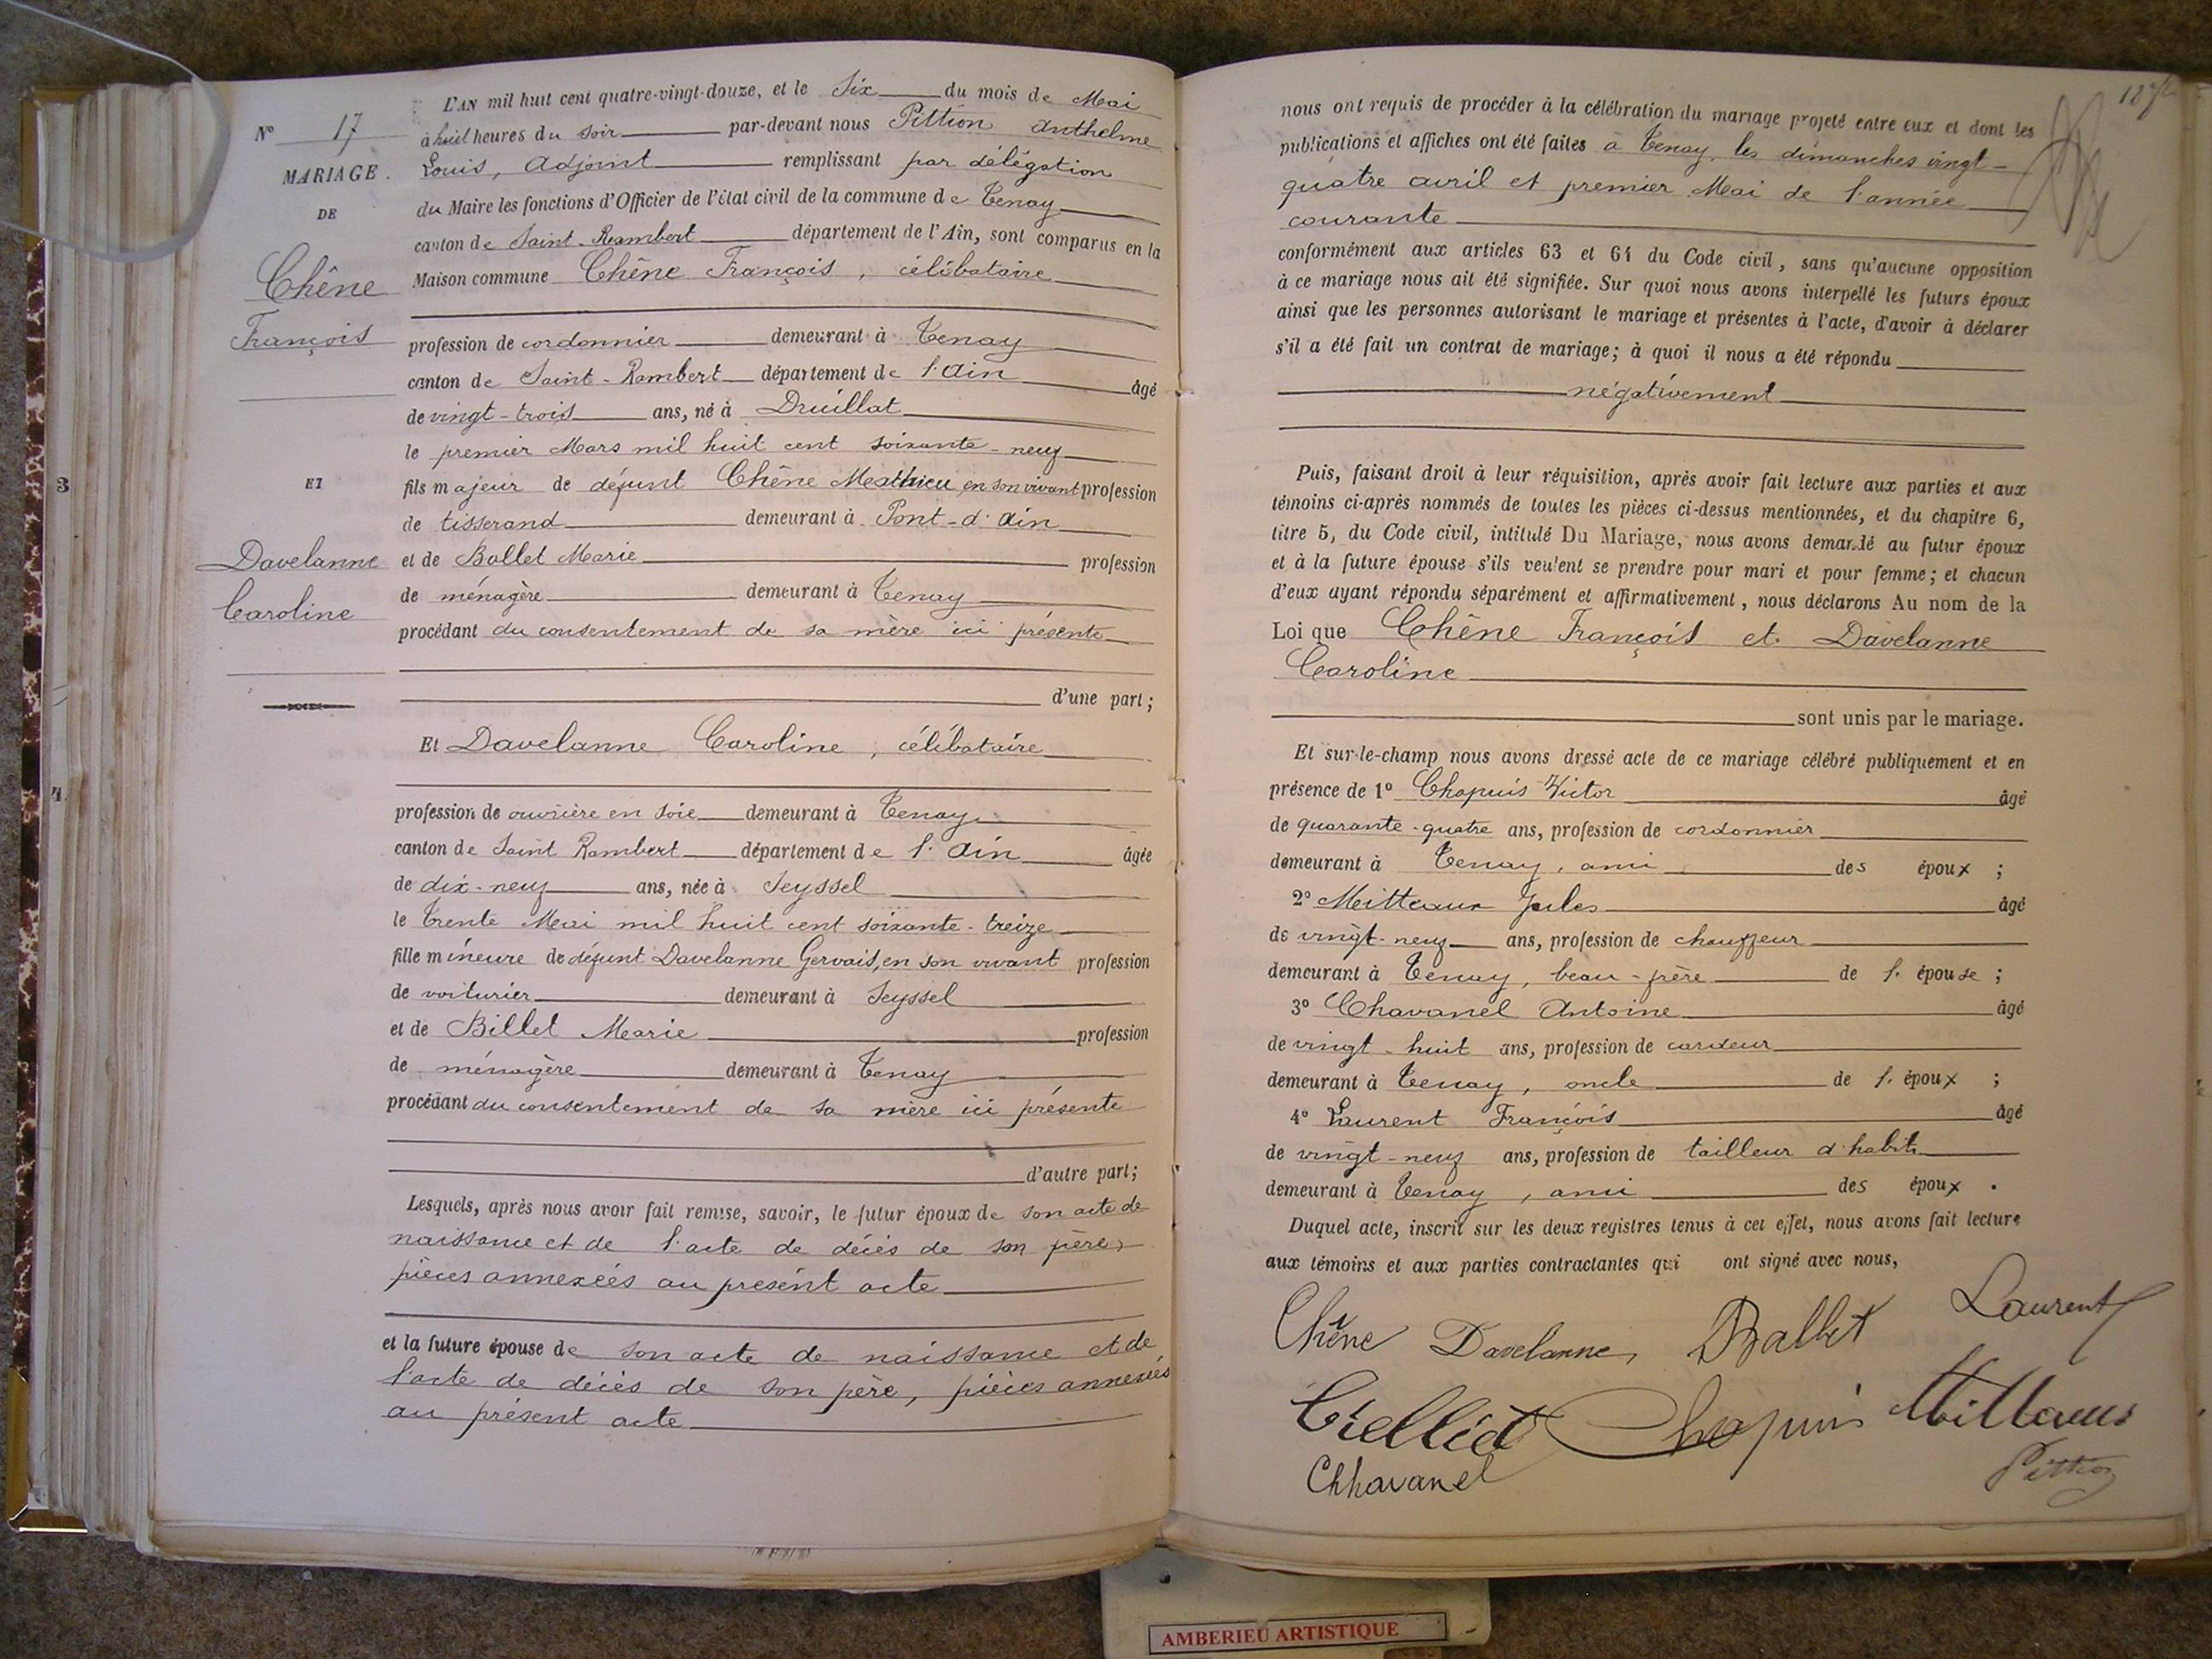 L'AN mil huit cent quatre-vingt-douze, et le Six du mois de Mai
N° 17
à huit heures du soir par-devant nous Pittion Anthelme
MARIAGE.
Louis, Adjoint remplissant par délégation
DE
du Maire les fonctions d'Officier de l'état civil de la commune de Tenay
canton de Saint-Rambert département de l'Ain, sont comparus en la
Chêne
Maison commune Chêne François, célibataire
François
profession de cordonnier demeurant à Tenay
canton de Saint-Rambert département de l'Ain âgé
de vingt-trois ans, né à Druillat
le premier Mars mil huit cent soixante-neuf
3
ET
fils majeur de défunt Chêne Matthieu en son vivant profession
de tisserand demeurant à Pont-d'Ain
Davelanne
et de Ballet Marie profession
Caroline
de ménagère demeurant à Tenay
procédant du consentement de sa mère ici présente
d'une part;
Et Davelanne Caroline, célibataire
4
profession de ouvrière en soie demeurant à Tenay
canton de Saint Rambert département de l'Ain âgée
de dix-neuf ans, née à Seyssel
le trente Mai mil huit cent soixante-treize
fille mineure de défunt Davelanne Gervais, en son vivant profession
de voiturier demeurant à Seyssel
et de Billet Marie profession
de ménagère demeurant à Tenay
procédant du consentement de sa mère ici présente
d'autre part;
Lesquels, après nous avoir fait remise, savoir, le futur époux de son acte de
naissance et de l'acte de décès de son père,
pièces annexées au présent acte
et la future épouse de son acte de naissance et de
l'acte de décès de son père, pièces annexées
au présent acte
nous ont requis de procéder à la célébration du mariage projeté entre eux et dont les
publications et affiches ont été faites à Tenay, les dimanches vingt-
quatre avril et premier Mai de l'année
courante
conformément aux articles 63 et 64 du Code civil, sans qu'aucune opposition
à ce mariage nous ait été signifiée. Sur quoi nous avons interpellé les futurs époux
ainsi que les personnes autorisant le mariage et présentes à l'acte, d'avoir à déclarer
s'il a été fait un contrat de mariage; à quoi il nous a été répondu
négativement
Puis, faisant droit à leur réquisition, après avoir fait lecture aux parties et aux
témoins ci-après nommés de toutes les pièces ci-dessus mentionnées, et du chapitre 6,
titre 5, du Code civil, intitulé Du Mariage, nous avons demandé au futur époux
et à la future épouse s'ils veulent se prendre pour mari et pour femme; et chacun
d'eux ayant répondu séparément et affirmativement, nous déclarons Au nom de la
Loi que Chêne François et Davelanne
Caroline
sont unis par le mariage.
Et sur-le-champ nous avons dressé acte de ce mariage célébré publiquement et en
présence de 1° Chapuis Victor âgé
de quarante-quatre ans, profession de cordonnier
demeurant à Tenay, ami des époux;
2° Mitteaux Jules âgé
de vingt-neuf ans, profession de chauffeur
demeurant à Tenay, beau-frère de l'épouse;
3° Chavanel Antoine âgé
de vingt-huit ans, profession de cardeur
demeurant à Tenay, oncle de l'époux;
4° Laurent François âgé
de vingt-neuf ans, profession de tailleur d'habits
demeurant à Tenay, ami des époux.
Duquel acte, inscrit sur les deux registres tenus à cet effet, nous avons fait lecture
aux témoins et aux parties contractantes qui ont signé avec nous,
Chêne Davelanne Ballet Laurent
Chapuis Mitteaux
Chhavanel Pittion
AMBERIEU ARTISTIQUE